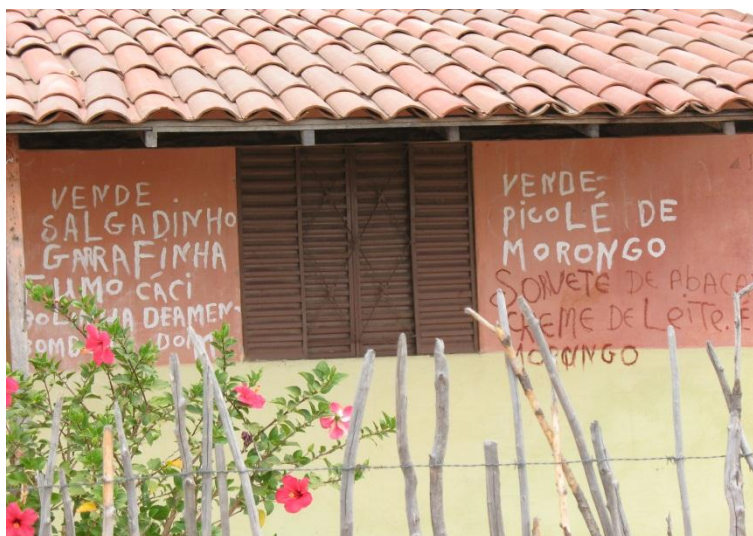 VENDE
SALGADINHO
GARRAFINHA
FUMO CÁCI
DEAMEN
VENDE-
PICOLÉ DE
MORONGO
SORVETE DE ABACA
CREME DE LEITE. E
MORONGO